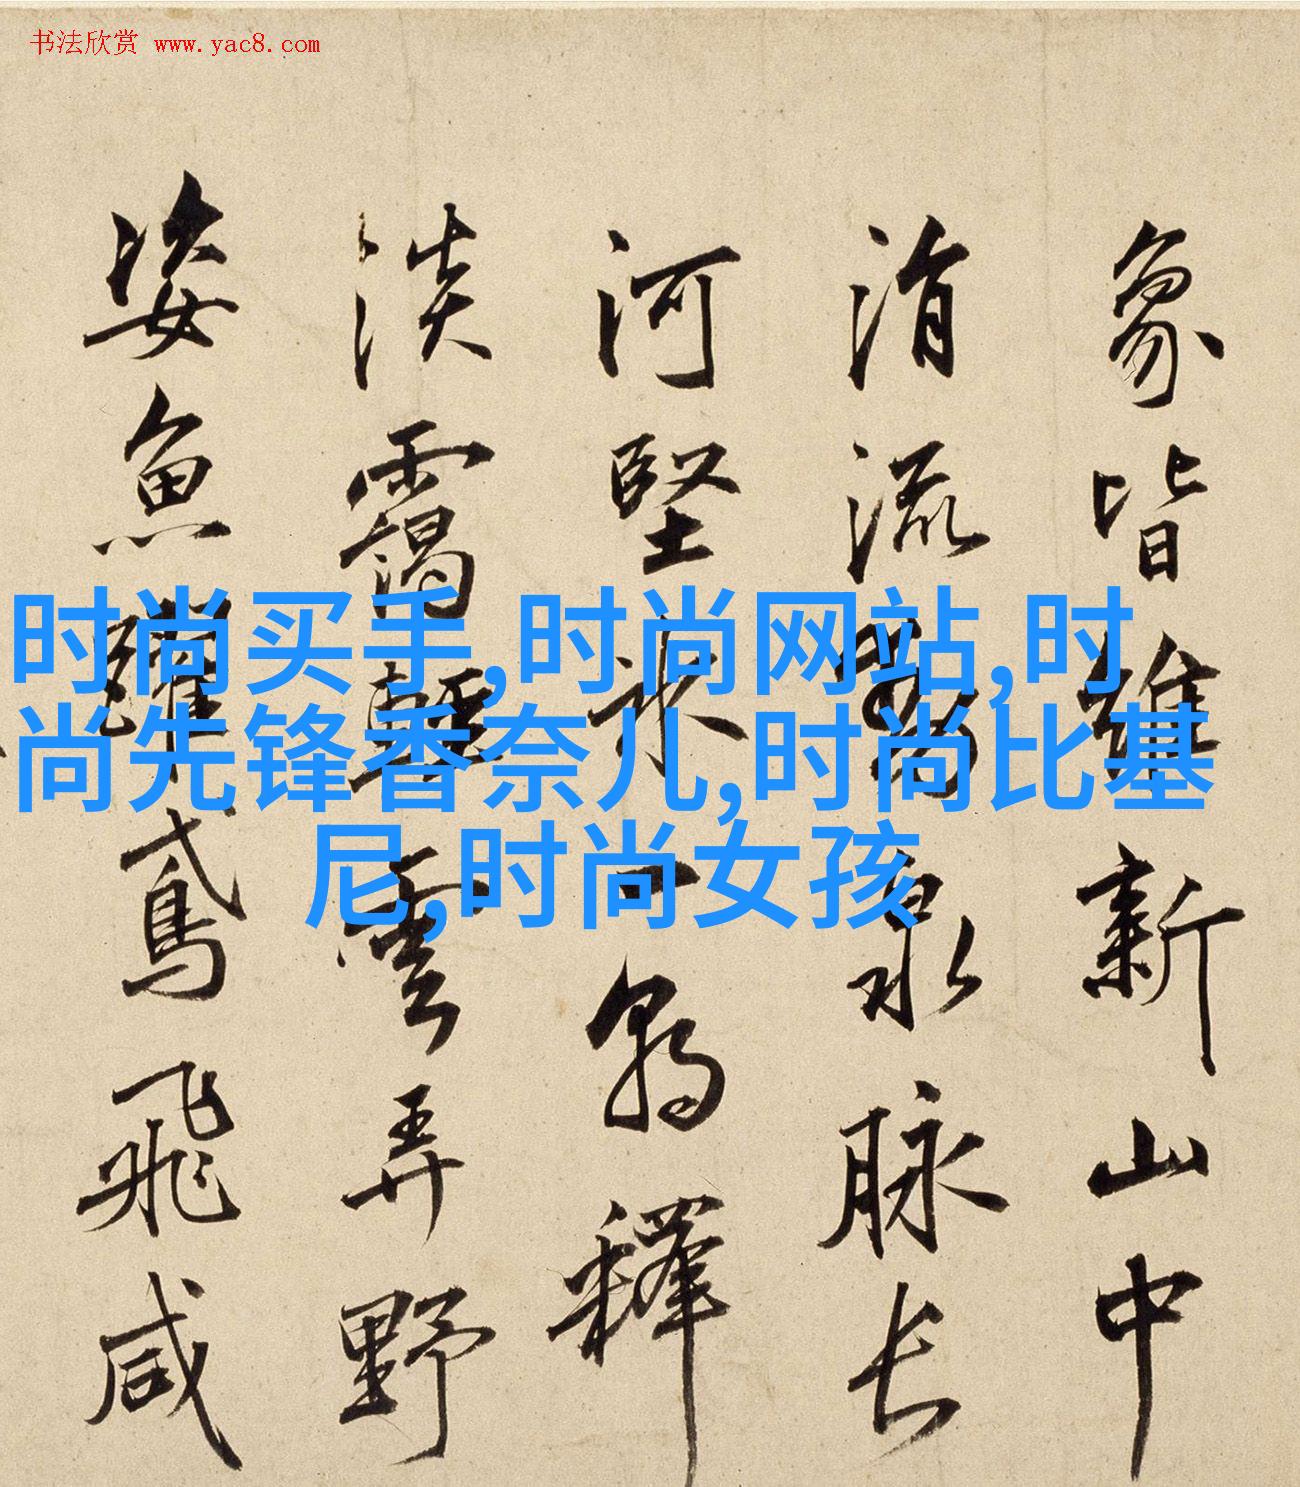 书法欣赏 www.yac8.com
象皆維新山中
消流泉脉長
河堅冰一朝釋
淡靄輕雲弄野
姿魚躍鳶飛咸
时尚买手,时尚网站,时
尚先锋香奈儿,时尚比基
尼,时尚女孩